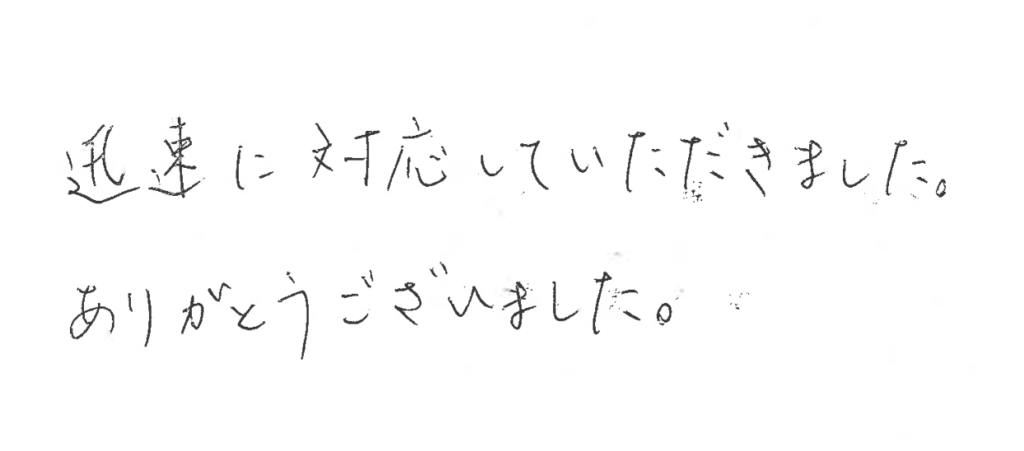 迅速に対応していただきました。
ありがとうございました。